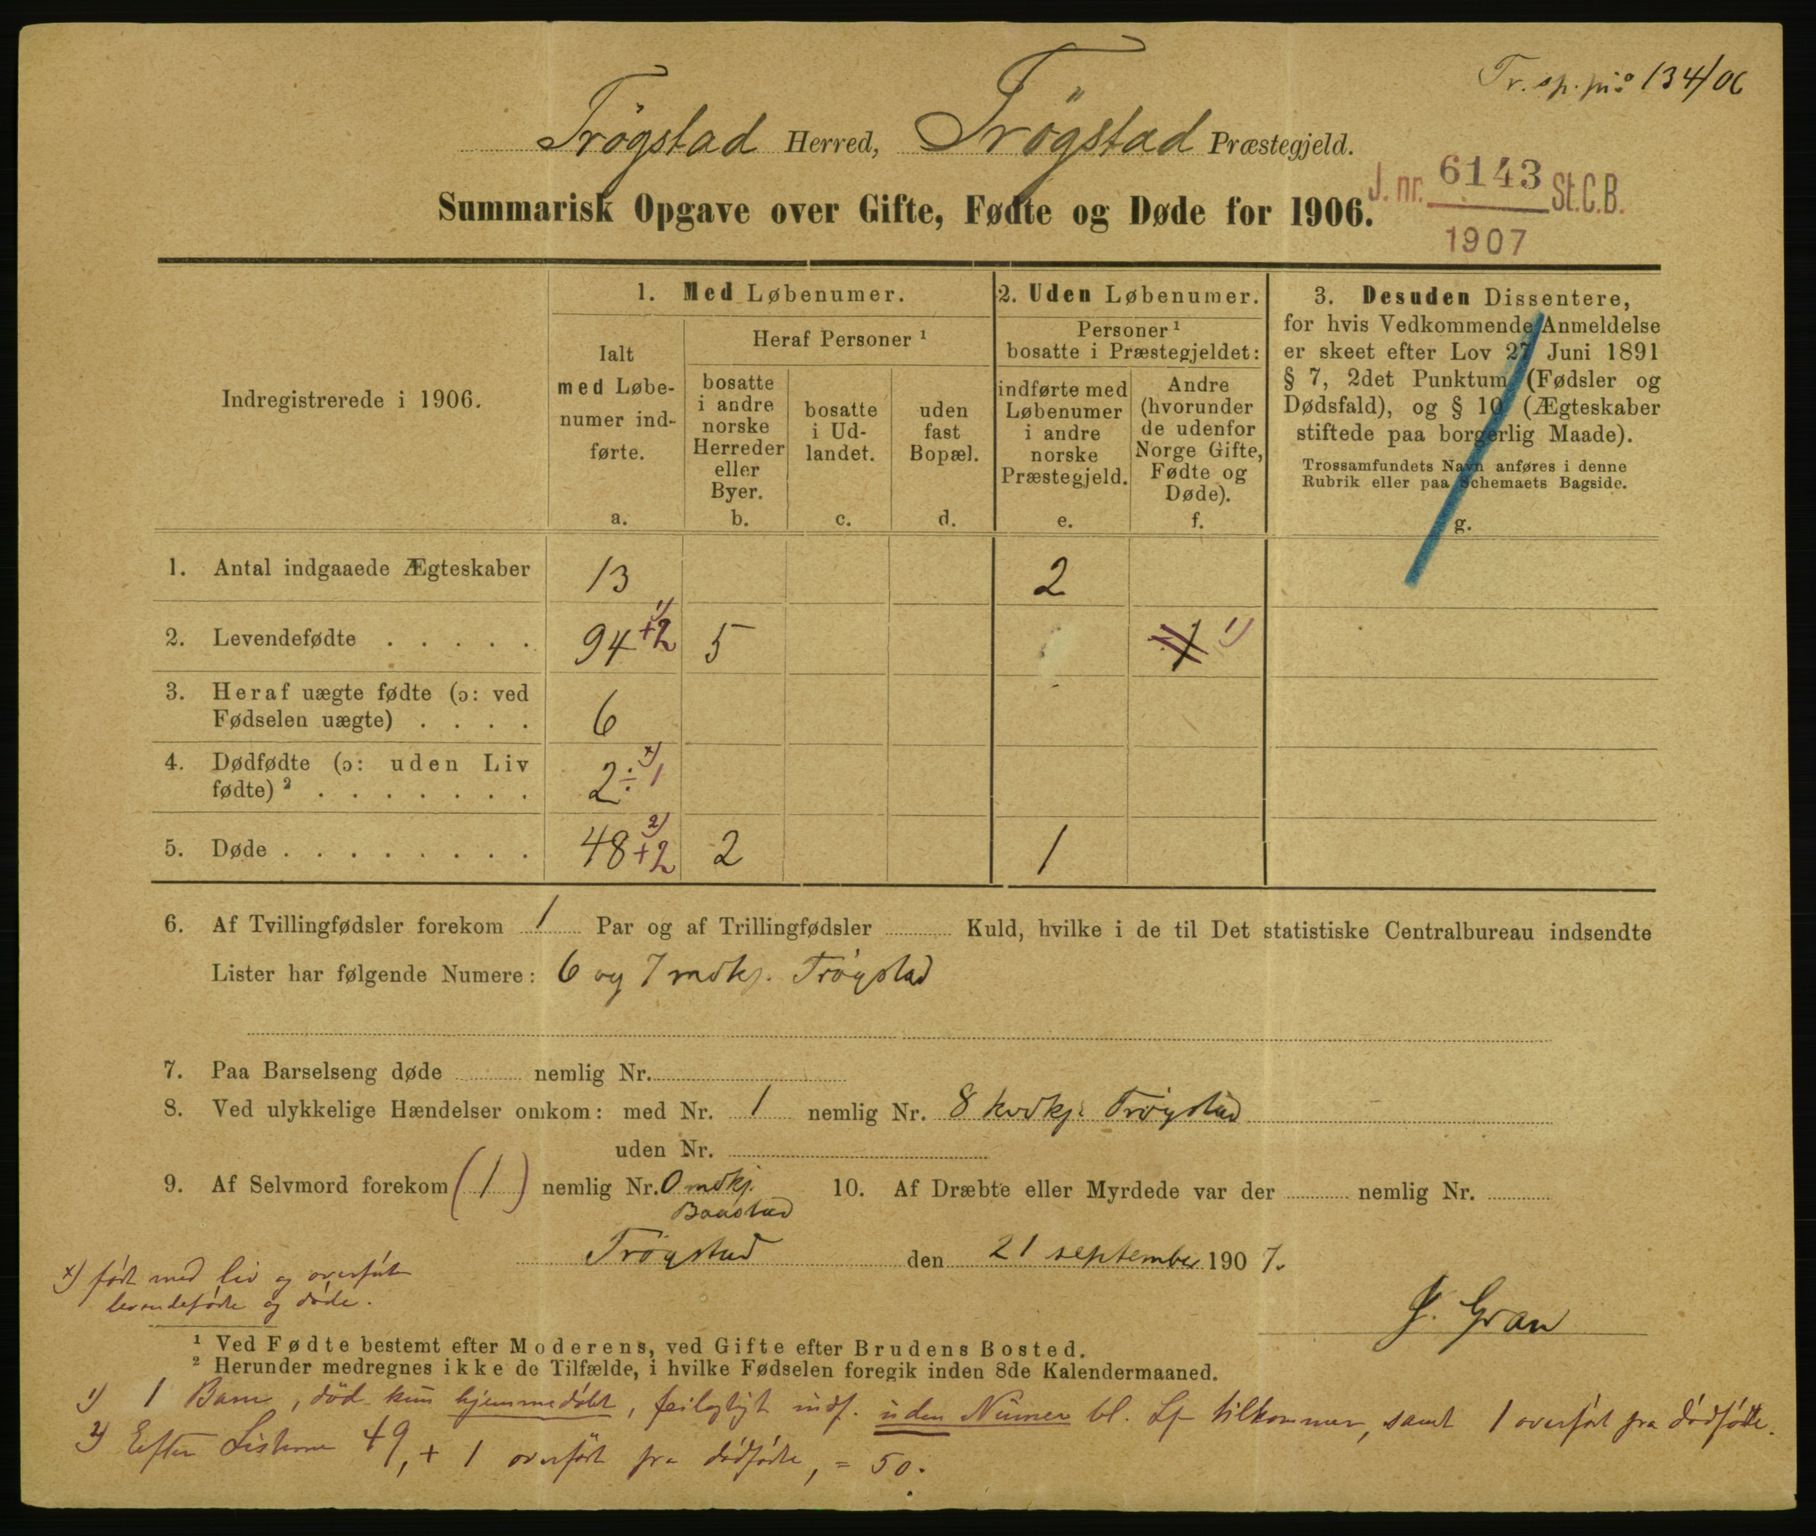 Tr. sp. paa 134/06
Trögstad Herred, Trögstad Præstegjeld.
Summarisk Opgave over Gifte, Fødte og Døde for 1906.
J. nr. 6143 St.C.B.
1907
Indregistrerede i 1906.
1. Med Løbenumer.
Ialt
med Løbe-
numer ind-
førte.
a.
Heraf Personer ¹
bosatte
i andre
norske
Herreder
eller
Byer.
b.
bosatte
i Ud-
landet.
c.
uden
fast
Bopæl.
d.
2. Uden Løbenumer.
Personer ¹
bosatte i Præstegjeldet:
indførte med
Løbenumer
i andre
norske
Præstegjeld.
e.
Andre
(hvorunder
de udenfor
Norge Gifte,
Fødte og
Døde).
f.
3. Desuden Dissentere,
for hvis Vedkommende Anmeldelse
er skeet efter Lov 27 Juni 1891
§ 7, 2det Punktum (Fødsler og
Dødsfald), og § 10 (Ægteskaber
stiftede paa borgerlig Maade).
Trossamfundets Navn anføres i denne
Rubrik eller paa Schemaets Bagside.
g.
1. Antal indgaaede Ægteskaber 13 2
2. Levendefødte . . . . . 94 +2 1) 5 1 1)
3. Heraf uægte fødte (ɔ: ved
Fødselen uægte) . . . . 6
4. Dødfødte (ɔ: uden Liv
fødte) ² . . . . . . . 2 ÷ 1 x)
5. Døde . . . . . . . . 48 +2 2) 2 1
6. Af Tvillingfødsler forekom 1 Par og af Trillingfødsler Kuld, hvilke i de til Det statistiske Centralbureau indsendte
Lister har følgende Numere: 6 og 7 mdkj. Trögstad
7. Paa Barselseng døde nemlig Nr.
8. Ved ulykkelige Hændelser omkom: med Nr. 1 nemlig Nr. 8 kvdkj. Trögstad
uden Nr.
9. Af Selvmord forekom (1) nemlig Nr. 0 mdkj.
Baastad
10. Af Dræbte eller Myrdede var der nemlig Nr.
Trögstad den 21 september 1907.
x) født med liv og overført
levendefødte og døde.
J. Gran
¹ Ved Fødte bestemt efter Moderens, ved Gifte efter Brudens Bosted.
² Herunder medregnes ikke de Tilfælde, i hvilke Fødselen foregik inden 8de Kalendermaaned.
1) 1 Barn, död kun hjemmedöbt, feilagtigt indf. uden Numer bl. Lf tilkommer, samt 1 overført fra dödfödte.
2) Efter Listerne 49, + 1 overfört fra dödfödte, = 50.